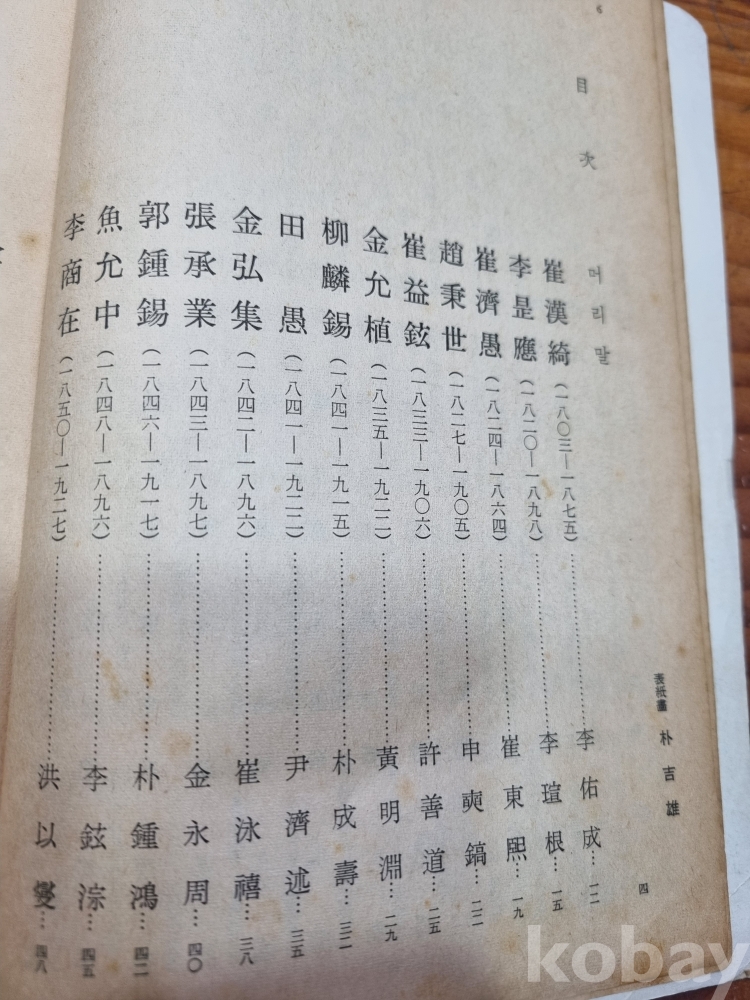 6
目次
머리말 四
表紙畵 朴吉雄
崔漢綺(一八〇三―一八七五)……李佑成…一二
李昰應(一八二〇―一八九八)……李瑄根…一五
崔濟愚(一八二四―一八六四)……崔東熙…一九
趙秉世(一八二七―一九〇五)……申奭鎬…二二
崔益鉉(一八三三―一九〇六)……許善道…二五
金允植(一八三五―一九二二)……黃明淵…二九
柳麟錫(一八四一―一九一五)……朴成壽…三二
田愚(一八四一―一九二二)……尹濟述…三五
金弘集(一八四二―一八九六)……崔泳禧…三八
張承業(一八四三―一八九七)……金永周…四〇
郭鍾錫(一八四六―一九一七)……朴鍾鴻…四二
魚允中(一八四八―一八九六)……李鉉淙…四五
李商在(一八五〇―一九二七)……洪以燮…四八
kobay